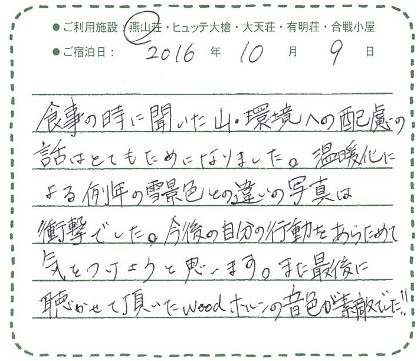 ●ご利用施設・燕山荘・ヒュッテ大槍・大天荘・有明荘・合戦小屋
●ご宿泊日: 2016 年 10 月 9 日
食事の時に聞いた山・環境への配慮の
話はとてもためになりました。温暖化に
よる例年の雪景色との違いの写真は
衝撃でした。今後の自分の行動をあらためて
気をつけようと思います。また最後に
聴かせて頂いたwoodホルンの音色が素敵でした!!